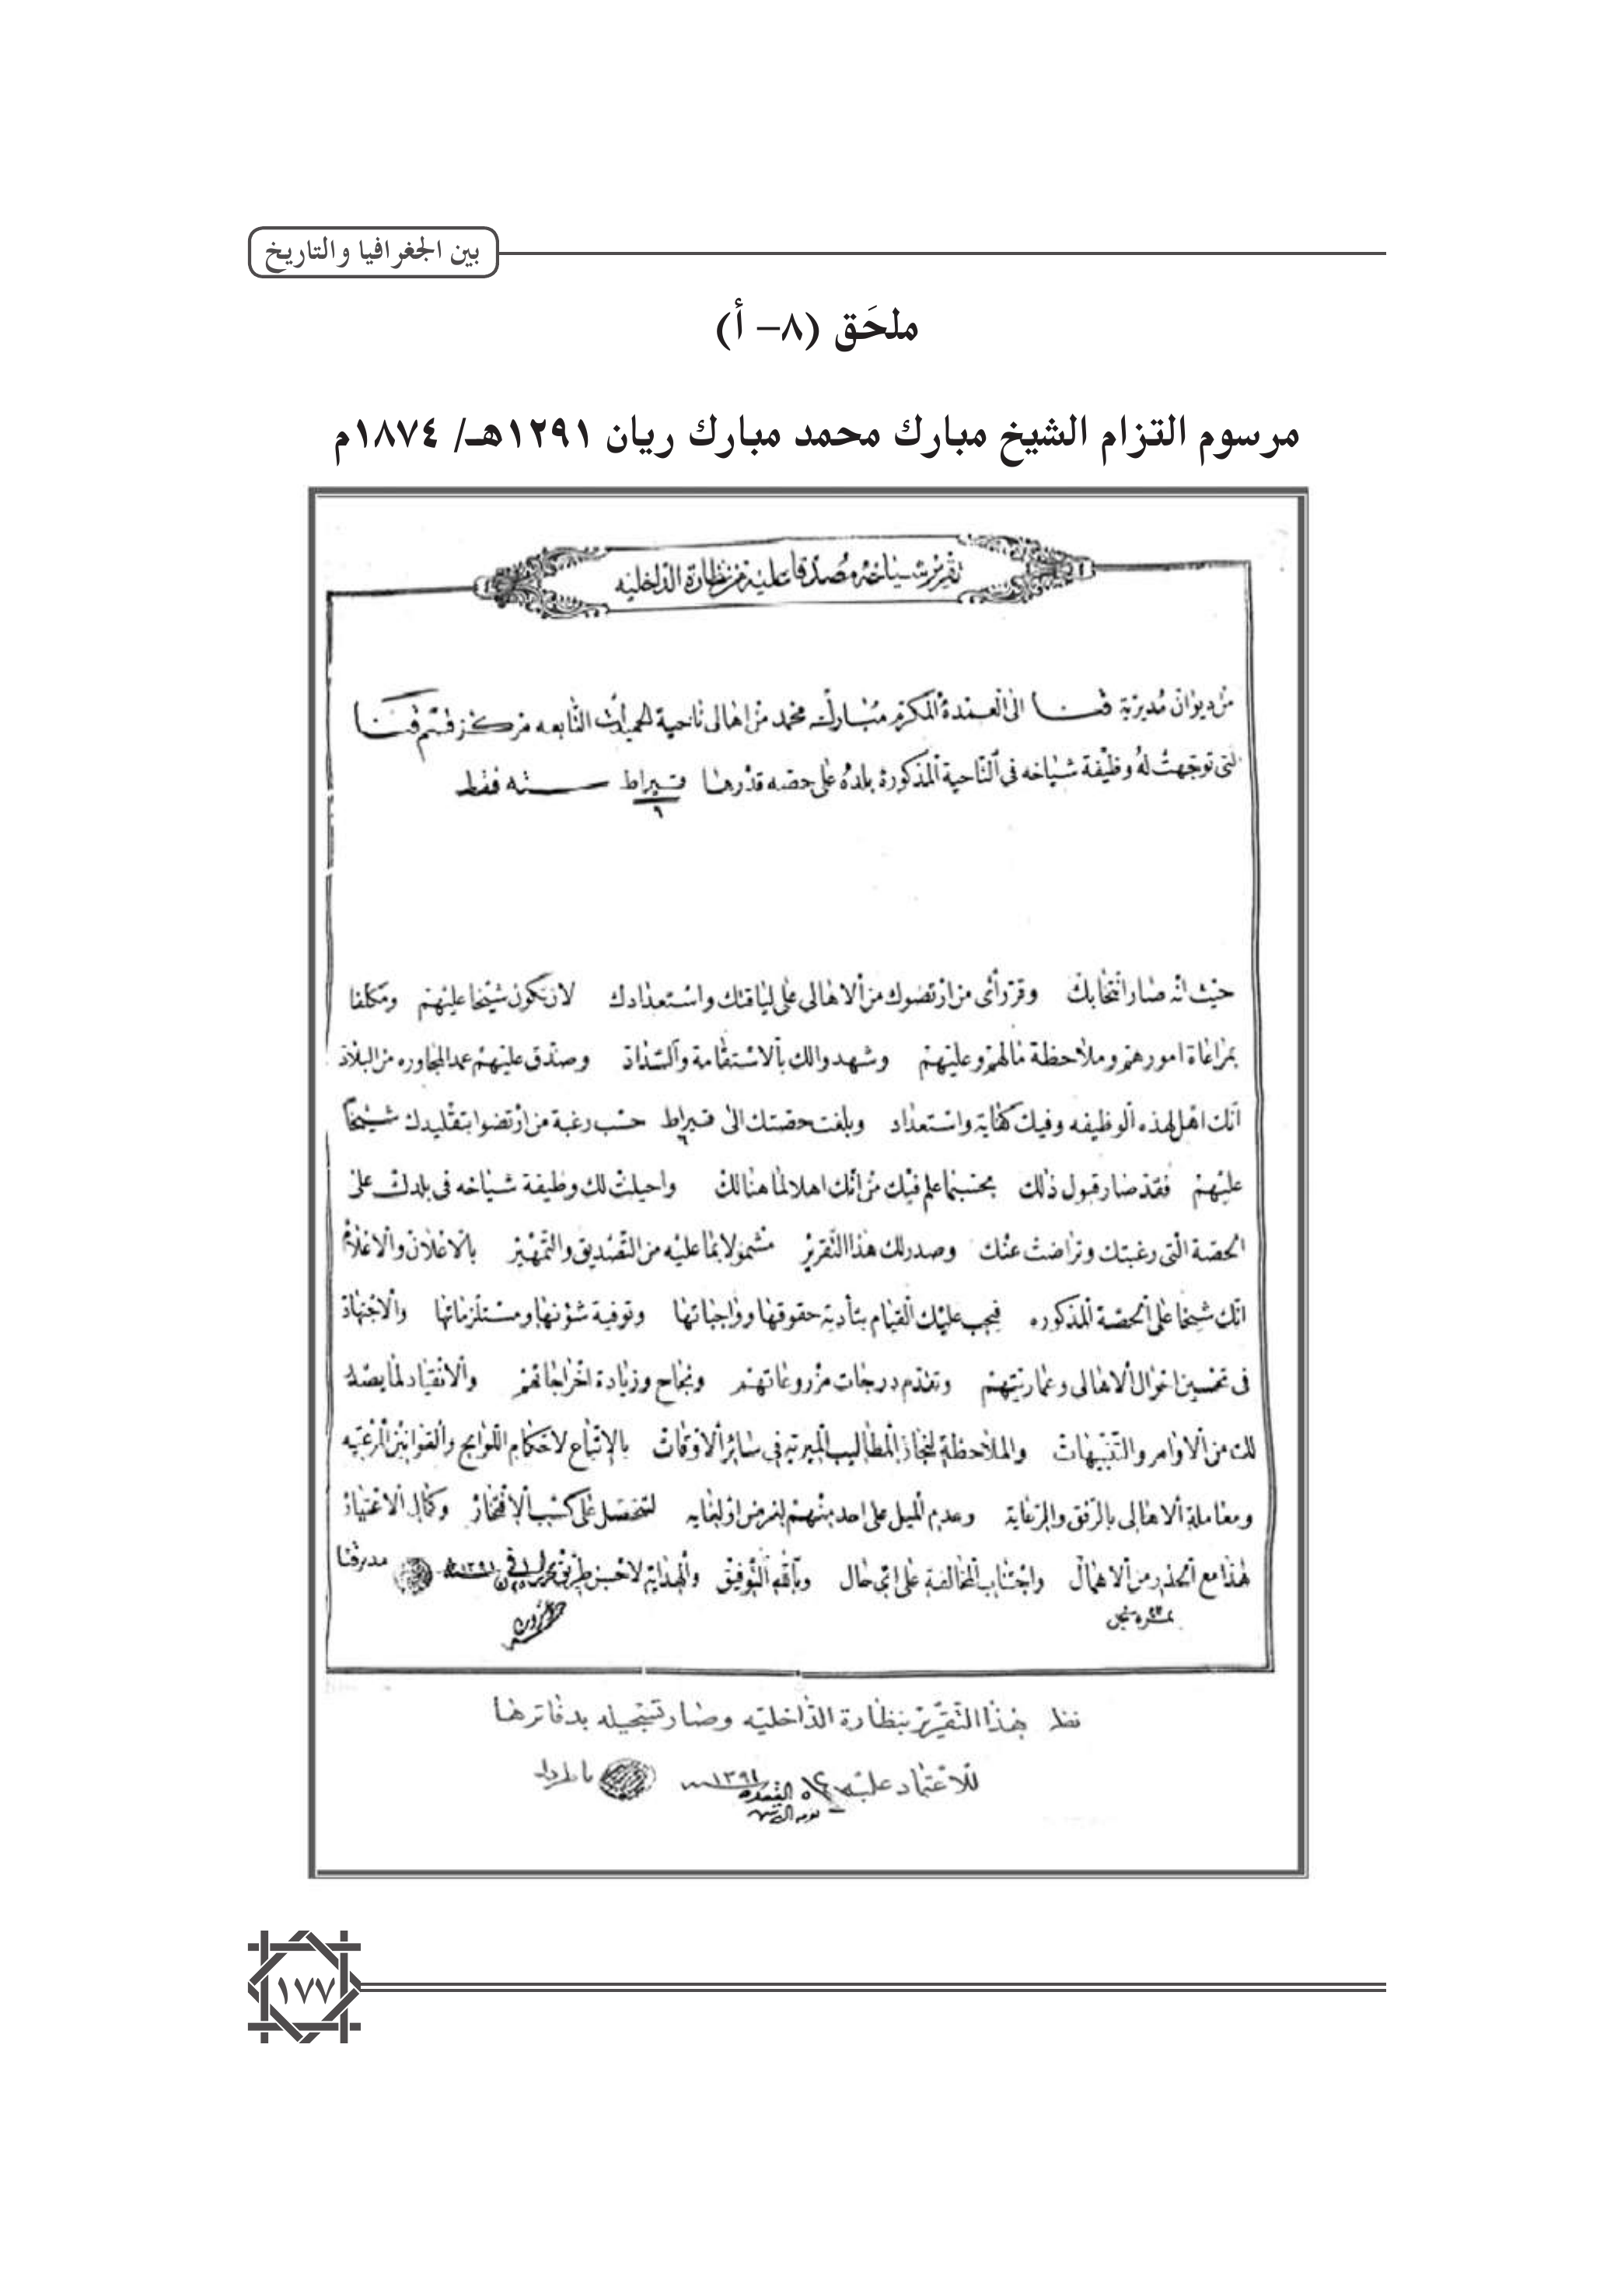 بين الجغرافيا والتاريخ
ملحَق (٨- أ)
مرسوم التزام الشيخ مبارك محمد مبارك ريان ١٢٩١هـ/ ١٨٧٤م
تقرير شياخه مصدقا عليه من نظارة الداخليه
من ديوان مديرية قنا الى العمدة المكرم مبارك محمد من اهالى ناحية الحميدات التابعه مركز قسم قنا
التى توجهت له وظيفة شياخه فى الناحية المذكورة بلده على حصه قدرها قيراط سته فقط
٦
حيث انه صار انتخابك وقر رأى من ارتضوك من الاهالى على لياقتك واستعدادك لان تكون شيخا عليهم ومكلفا
بمراعاة امورهم وملاحظة مالهم وعليهم وشهدوا لك بالاستقامة والسداد وصدق عليهم عمد المجاوره من البلاد
انك اهل لهذه الوظيفه وفيك كفاية واستعداد وبلغت حصتك الى قيراط ٦ حسب رغبة من ارتضوا بتقليدك شيخا
عليهم فقد صار قبول ذلك بحسبما علم فيك من انك اهلا لما هنالك واحيلت لك وظيفة شياخه فى بلدك على
الحصة التى رغبتك وتراضت عنك وصدر لك هذا التقرير مشمولا بما عليه من التصديق والتمهير بالاعلان والاعلام
انك شيخا على الحصة المذكوره فيجب عليك القيام بتأدية حقوقها وواجباتها وتوفية شؤنها ومستلزماتها والاجتهاد
فى تحسين احوال الاهالى وعمارتهم وتقدم درجات مزروعاتهم ونجاح وزيادة اخراجاتهم والانقياد لما يصدر
لك من الاوامر والتنبيهات والملاحظة لنجاز المطاليب الميريه فى سائر الاوقات بالاتباع لاحكام اللوايح والقوانين المرعيه
ومعاملة الاهالى بالرفق والرعاية وعدم الميل على احد منهم لغرض او لغايه لتحصل على كسب الافتخار وكمال الاعتبار
هذا مع الحذر من الاهمال واجتناب المخالفة على اى حال وبالله التوفيق والهداية لاحسن طريق تحريرا فى ١٢٩١ مدير قنا
هذا التقرير بنظارة الداخليه وصار تسجيله بدفاترها
للاعتماد عليه القعده ١٢٩١
١٧٧